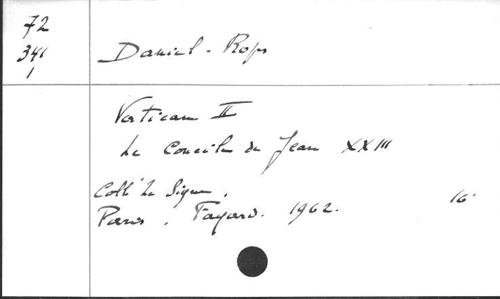 72
341
1
Daniel-Rops
Vatican II
Le Concile de Jean XXIII
Coll. Le Signe.
Paris, Fayard. 1962. 16°